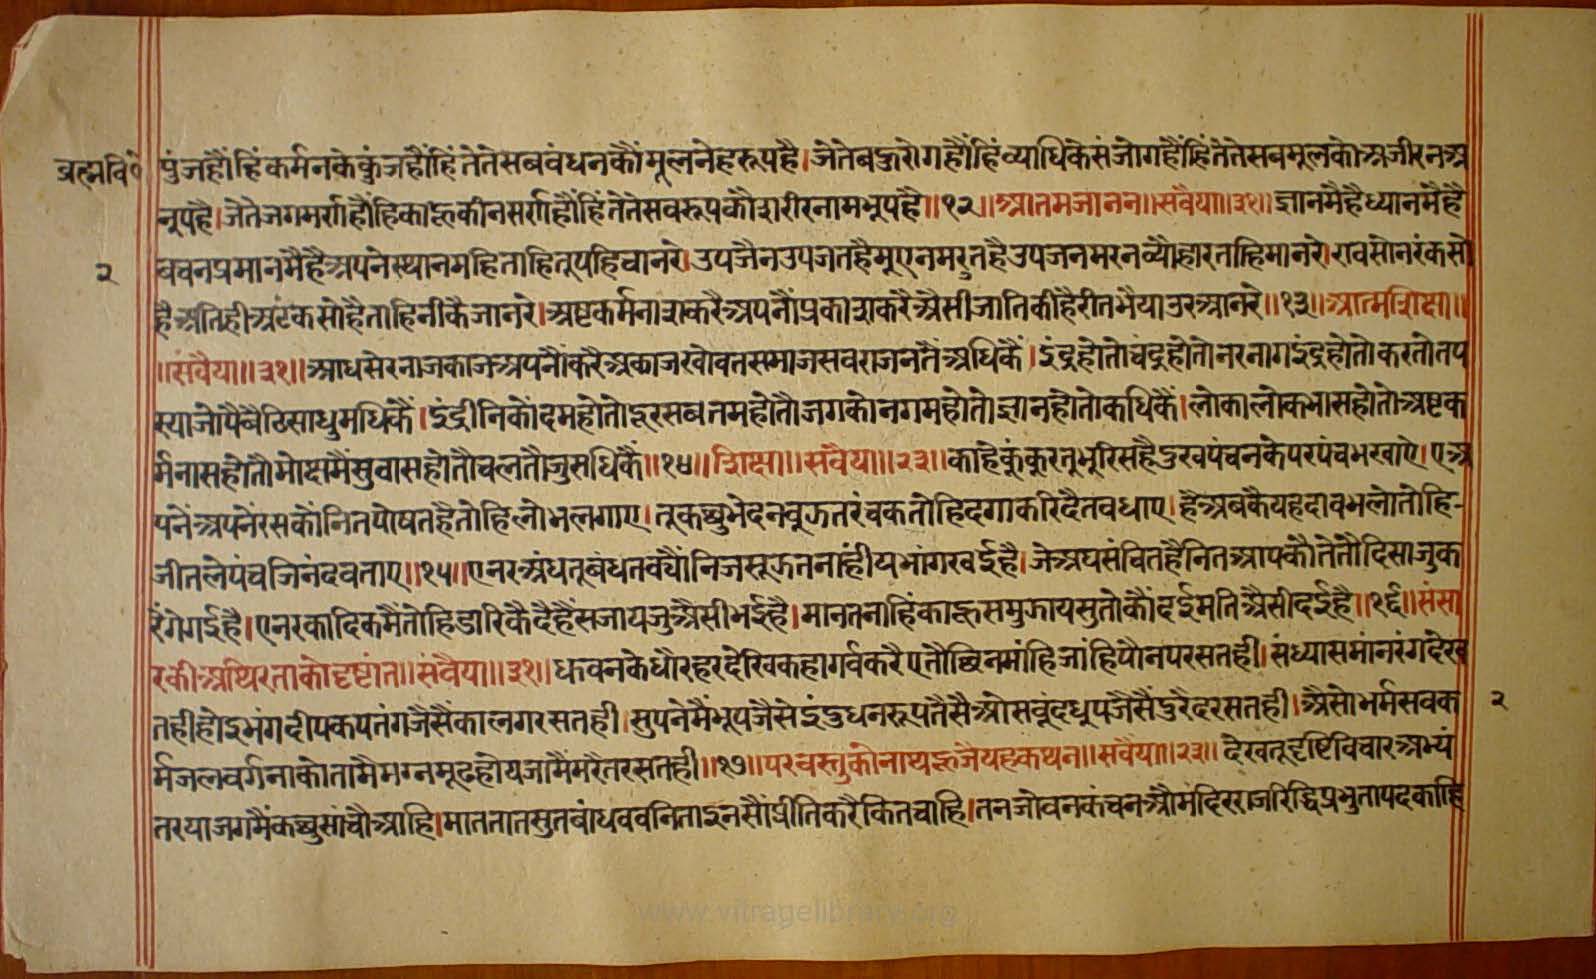 ब्रह्मविं॰
पुंजहौंहिंकर्मनकेकुंजहौंहिंतेतेसबबंधनकौंमूलनेहरूपहै।जेतेबऊरोगहौंहिंव्याधिकेसंजोगहौंहिंतेतेसबमूलकोअजीरनअ
नुपहै।जेतेजगमर्णहौंहिकाहूकीनसर्णहौंहिंतेतेसवरूपकौशरीरनामभुपहै॥१२॥आतमजानन॥सवैया॥३१॥ज्ञानमैहैध्यानमैहै
२
वचनप्रमानमैहैअपनेस्थानमहिताहितूपहिचानरे।उपजैनउपजतहैमुएनमरतहैउपजनमरनव्यौहारताहिमानरे।रावसोनरंकसो
हैअतिहीअटंकसोहैताहिनीकैजानरे।अष्टकर्मनाशकरैअपनौंप्रकाशकरैअैसीजातिकीहैरीतभैयाउरआनरे॥१३॥आत्मशिक्षा॥
॥सवैया॥३१॥आधसेरनाजकाजअपनौंकरैअकाजखोवतसमाजसवराजनतैंअधिकैं।इंद्रहोतोचंद्रहोतोनरनागइंद्रहोतोकरतोतप
स्याजोपैबैठिसाधुमधिकैं।इंद्रीनिकोंदमहोतोदूरसबतमहोतौजगकोनगमहोतोज्ञानहोतोकधिकैं।लोकालोकभासहोतोअष्टक
र्मनासहोतौमोक्षमैंसुवासहोतौचलतौजुसधिकैं॥१४॥शिक्षा॥सवैया॥२३॥काहेकुंकुरतुभुरिसहैदुखपंचनकेपरपंचभखाए।एअ
पनेंअपनेंरसकौंनितपोषतहैतोहिलोभलगाए।तूकछुभेदनबुझतरंचकतोहिदगाकरिदैतबधाए।हैअबकैयहदावभलोतोहि-
जीतलेपंचजिनंदवताए॥१५॥एनरअंधतूबंधतक्यौंनिजसूझतनांहींयभांगखईहै।जेअघसंचितहैनितआपकौतेतौदिसाजुक
रेंगेगईहै।एनरकादिकमैंतोहिडारिकैदैहैंसजायजुअैसीभईहै।मानतनाहिंकाहूसमुझायसुतोकौंदईमतिअैसीदईहै॥१६॥संसा
रकीअथिरताकोदृष्टांत॥सवैया॥३१॥धूवनकेधौरहरदेखिकहागर्वकरैएतौछिनमांहिजांहिपौनपरसतही।संध्यासमांनरंगदेख
२
तहीहोइभंगदीपकपतंगजैसैंकालगरसतही।सुपनेमैंभूपजैसेइंद्रुधनरूपतैसैओसबूंदधूपजैसैंदुरैदरसतही।अैसोभर्मसवक
र्मजलवर्गनाकोतामैमग्नमूढहोयजामैंमरैतरसतही॥१७॥परवस्तुकोनाथहूजैयहकथन॥सवैया॥२३॥देखतूदृष्टिविचारअभ्यं
तरयाजगमैंकछुसांचौआहि।माततातसुतबांधववनिताइनसौंप्रीतिकरैकितचाहि।तनजोवनकंचनऔमंदिरराजरिद्धिप्रभुतापदकाहि
www.vitragelibrary.org